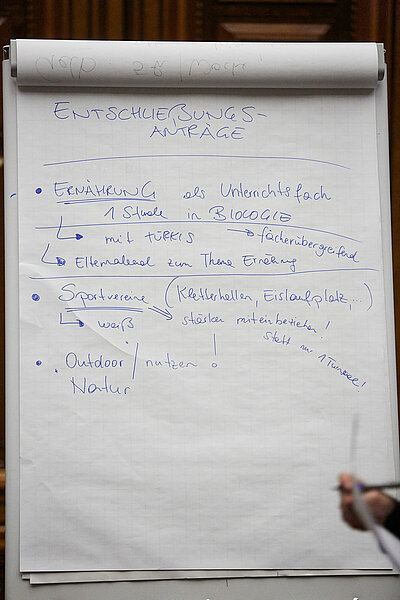 ENTSCHLIEßUNGS-
ANTRÄGE
• ERNÄHRUNG als Unterrichtsfach
1 Stunde in BIOLOGIE
mit TÜRKIS → fächerübergreifend
Elternabend zum Thema Ernährung
• Sportvereine (Kletterhallen, Eislaufplatz,...)
weiß stärker miteinbeziehen!
statt nur 1
• Outdoor / nutzen
Natur